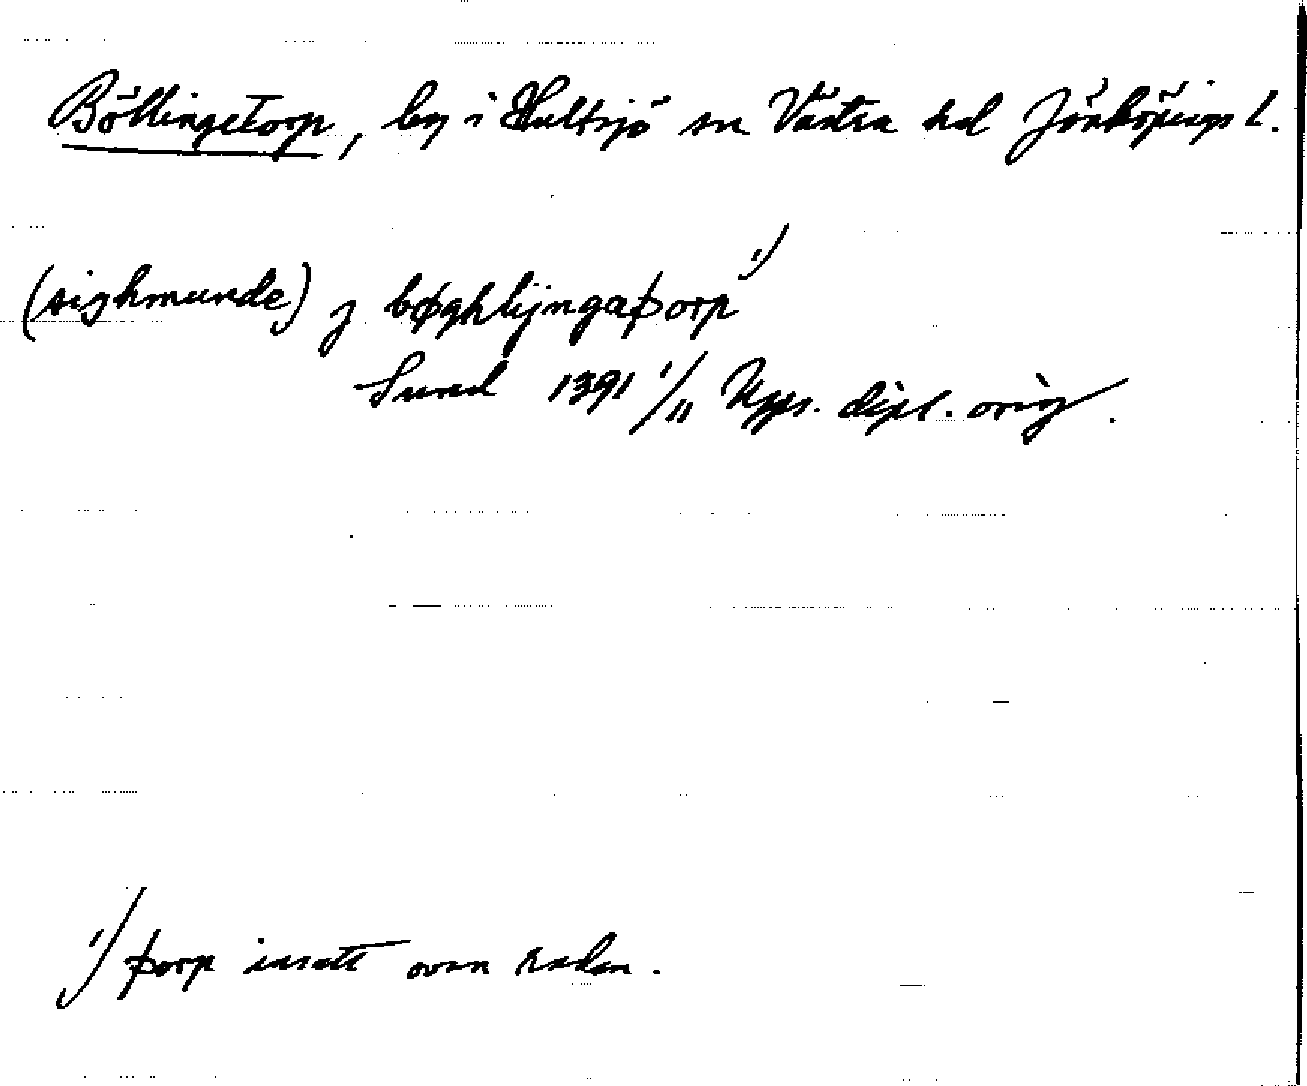 Böllingetorp, by i Hultsjö sn Västra hd Jönköpings l.
(sighmunde) j bøghlijngaþorp 1)
Sund 1391 1/11 Upps. dipl. orig.
1) þorp insatt ovan raden.